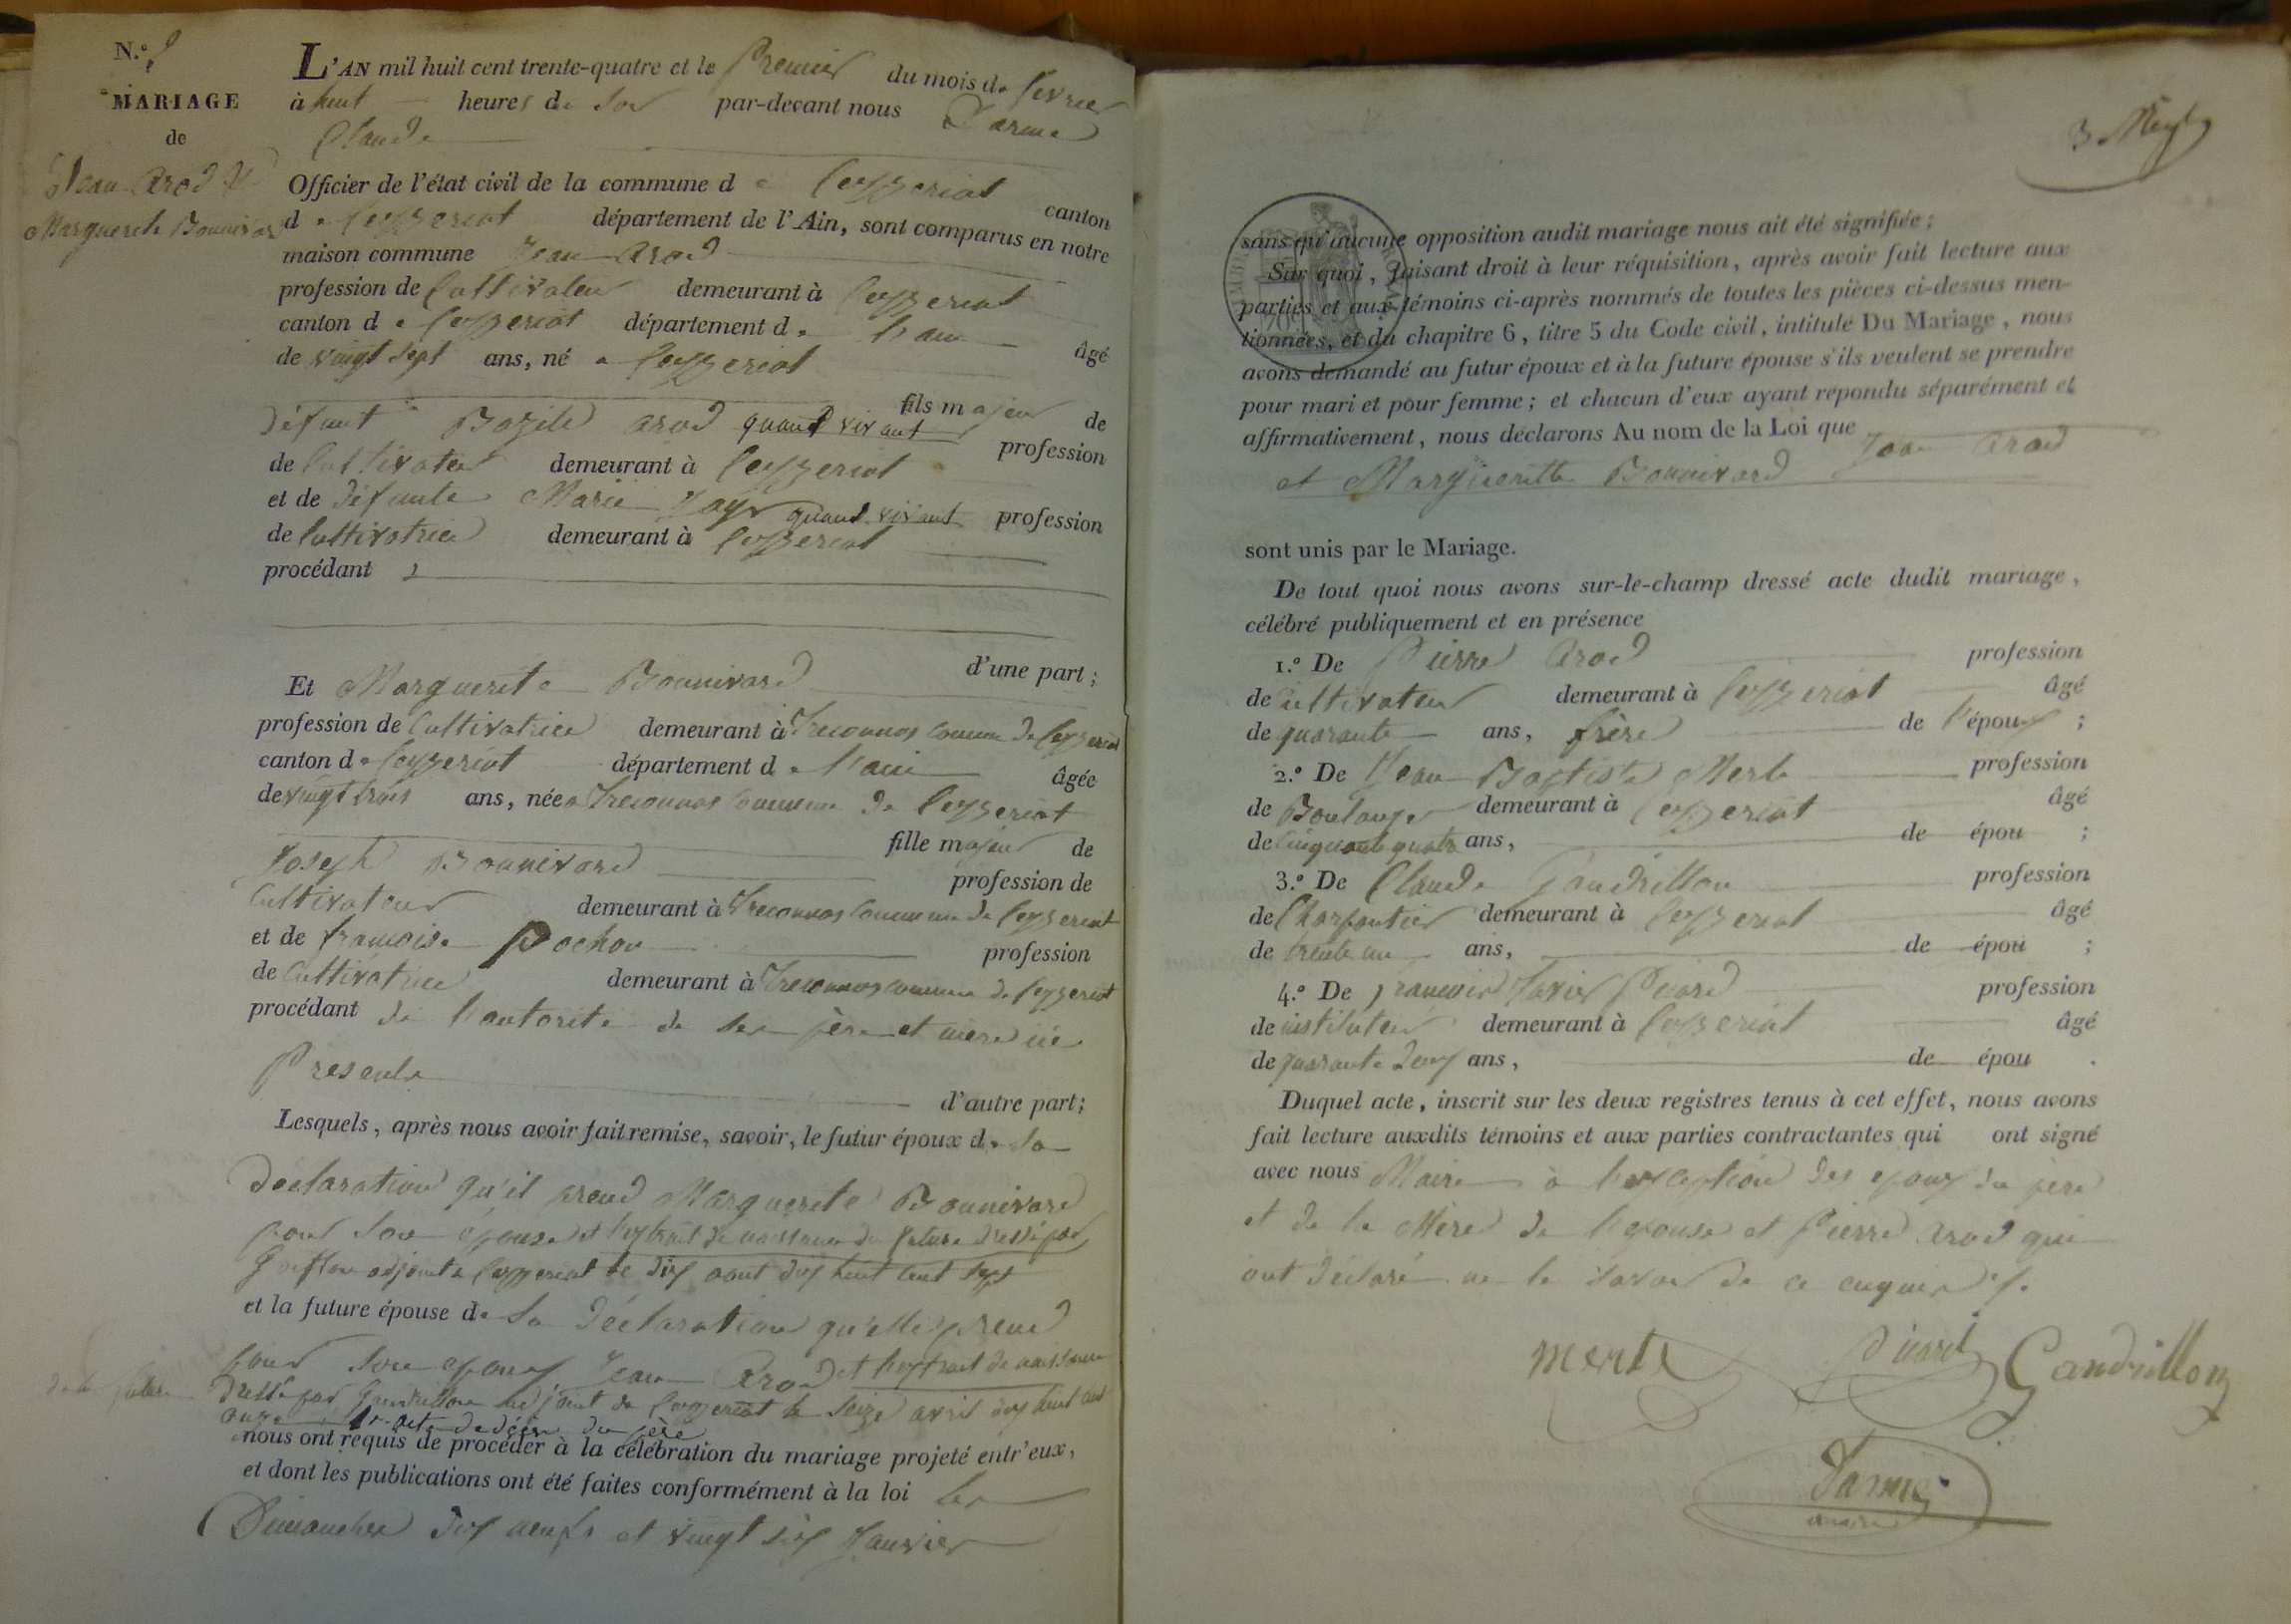 N.º
MARIAGE
de
Jean Arod &
Marguerite Bonnivard
L'AN mil huit cent trente-quatre et le Premier du mois de fevrier
à huit heures du Soir par-devant nous Darme
Claude
Officier de l'état civil de la commune de Ceyzeriat canton
de Ceyzeriat département de l'Ain, sont comparus en notre
maison commune Jean Arod
profession de Cultivateur demeurant à Ceyzeriat
canton de Ceyzeriat département de l'ain âgé
de vingt sept ans, né a Ceyzeriat
fils majeur de
défunt Bazile arod quand vivant profession
de Cultivateur demeurant à Ceyzeriat
et de défunte Marie quand vivant profession
de Cultivatrice demeurant à Ceyzeriat
procédant
d'une part ;
Et Marguerite Bonnivard
profession de Cultivatrice demeurant à Treconnas Commune de Ceyzeriat
canton de Ceyzeriat département de l'ain âgée
de vingt trois ans, née a Treconnas Commune de Ceyzeriat
fille majeur de
Joseph Bonnivard profession de
Cultivateur demeurant à Treconnas Commune de Ceyzeriat
et de françoise Pochon profession
de Cultivatrice demeurant à Treconnas commune de Ceyzeriat
procédant de l'autorité de ses père et mere ici
Presents
d'autre part ;
Lesquels, après nous avoir fait remise, savoir, le futur époux de sa
déclaration qu'il prend Marguerite Bonnivard
pour son épouse et l'extrait de naissance du future dressé par
adjoint a Ceyzeriat le dix aout dix huit cent sept
et la future épouse de Sa déclaration qu'elle prend
pour son epoux Jean Arod et l'extrait de naissance
de la future
dressé par Gandrillon adjoint de Ceyzeriat le seize avril dix huit cent
onze acte de décès du père
nous ont requis de procéder à la célébration du mariage projeté entr'eux,
et dont les publications ont été faites conformément à la loi les
Dimanches dix neufs et vingt six Janvier
sans qu'aucune opposition audit mariage nous ait été signifiée ;
Sur quoi, faisant droit à leur réquisition, après avoir fait lecture aux
parties et aux témoins ci-après nommés de toutes les pièces ci-dessus men-
tionnées, et du chapitre 6, titre 5 du Code civil, intitulé Du Mariage, nous
avons demandé au futur époux et à la future épouse s'ils veulent se prendre
pour mari et pour femme ; et chacun d'eux ayant répondu séparément et
affirmativement, nous déclarons Au nom de la Loi que Jean Arod
et Margueritte Bonnivard
sont unis par le Mariage.
De tout quoi nous avons sur-le-champ dressé acte dudit mariage,
célébré publiquement et en présence
1.º De Pierre Arod profession
de Cultivateur demeurant à Ceyzeriat âgé
de quarante ans, frère de l'époux ;
2.º De Jean Baptiste Merle profession
de Boulanger demeurant à Ceyzeriat âgé
de Cinquante quatre ans, de épou ;
3.º De Claude Gandrillon profession
de Charpentier demeurant à Ceyzeriat âgé
de trente un ans, de épou ;
4.º De françois Xavier Picard profession
de instituteur demeurant à Ceyzeriat âgé
de quarante deux ans, de épou .
Duquel acte, inscrit sur les deux registres tenus à cet effet, nous avons
fait lecture auxdits témoins et aux parties contractantes qui ont signé
avec nous Maire à l'exception des epoux du père
et de la Mère de l'epouse et Pierre Arod qui
ont déclaré ne le savoir de ce enquis
Merle Picard Gandrillon
Darme
maire